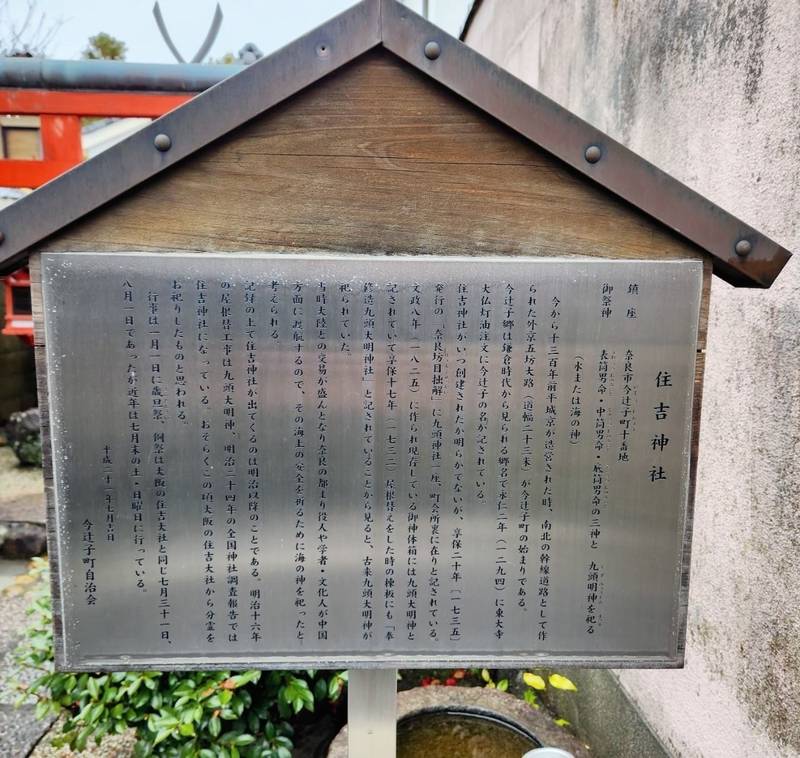 住吉神社
鎮座　奈良市今辻子町十番地
御祭神　表筒男命・中筒男命・底筒男命の三神と　九頭明神を祀る
（水または海の神）
今から千三百年前平城京が造営された時、南北の幹線道路として作
られた外京五坊大路（道幅二十三米）が今辻子町の始まりである。
今辻子郷は鎌倉時代から見られる郷名で永仁二年（一二九四）に東大寺
大仏灯油注文に今辻子の名が記されている。
住吉神社がいつ創建されたか明らかでないが、享保二十年〔一七三五〕
発行の「奈良坊目拙解」に九頭神社一座、町会所裏に在りと記されている。
文政八年（一八二五）に作られ現存している御神体箱には九頭大明神と
記されていて享保十七年（一七三二）屋根替えをした時の棟板にも「奉
修造九頭大明神社」と記されていることから見ると、古来九頭大明神が
祀られていた。
当時大陸との交易が盛んとなり奈良の都より役人や学者・文化人が中国
方面に渡航するので、その海上の安全を祈るために海の神を祀ったと
考えられる。
記録の上で住吉神社が出てくるのは明治以降のことである。明治十六年
の屋根替工事は九頭大明神、明治二十四年の全国神社調査報告では
住吉神社になっている。おそらくこの頃大阪の住吉大社から分霊を
お祀りしたものと思われる。
行事は一月一日に歳旦祭、例祭は大阪の住吉大社と同じ七月三十一日、
八月一日であったが近年は七月末の土・日曜日に行っている。
平成二十二年七月吉日
今辻子町自治会